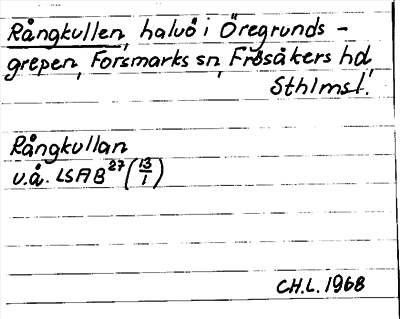 Rångkullen, halvö i Öregrunds-
grepen, Forsmarks sn, Frösåkers hd,
Sthlmsl.
Rångkullan
u.å. LSAB 27 (13/1)
CH.L. 1968